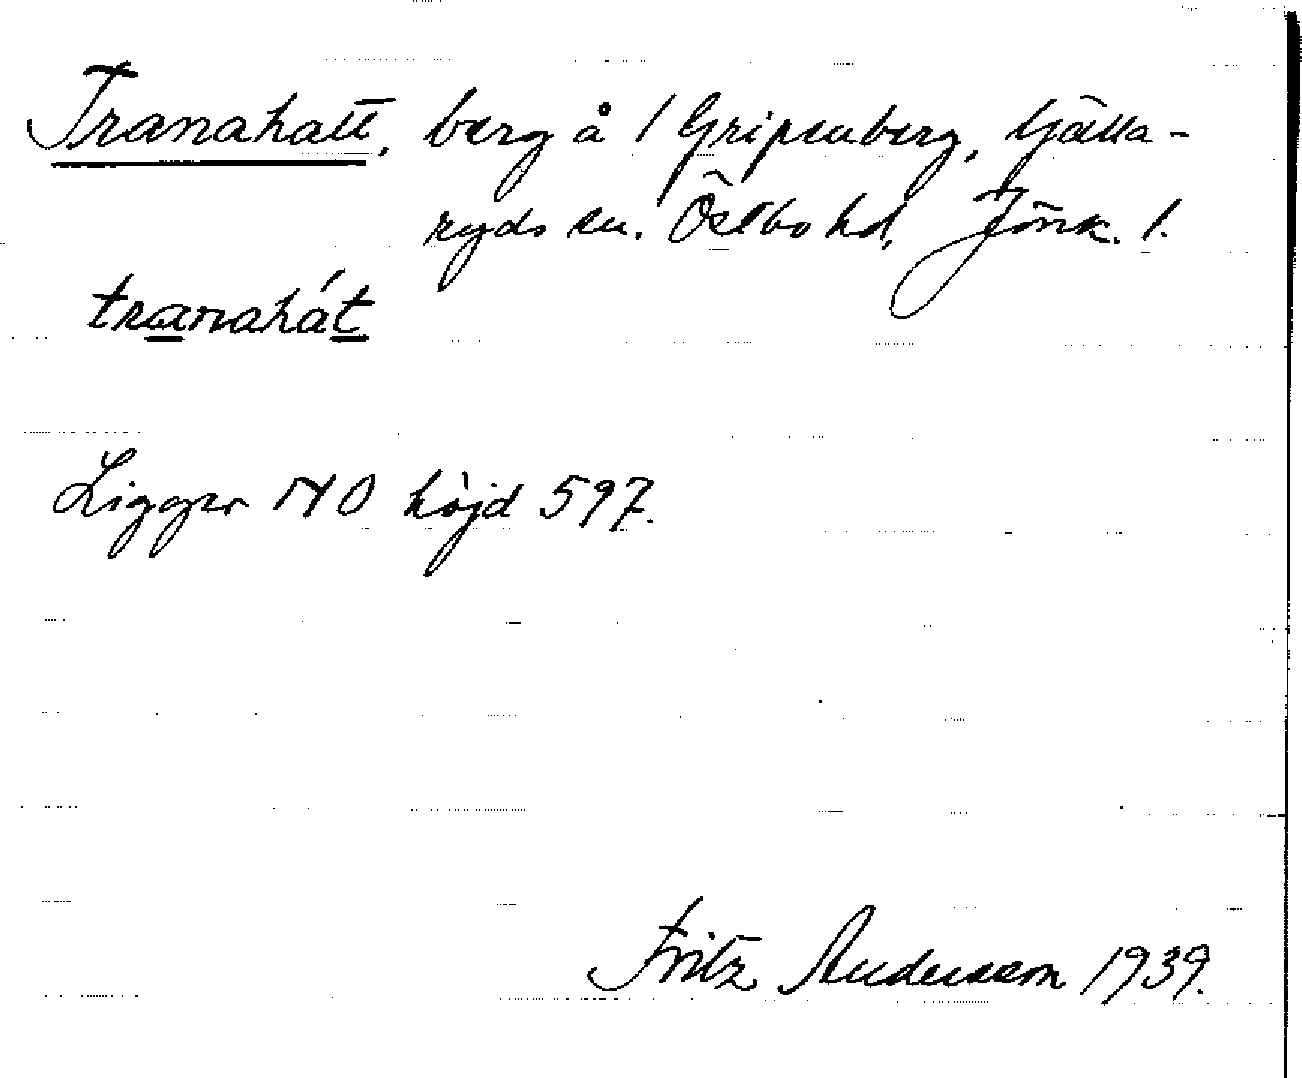 Tranahatt, berg å 1 Gripenberg, Gälla-
ryds sn. Östbo hd, Jönk. l.
tranahát
Ligger NO höjd 597.
Fritz Andersson 1939.